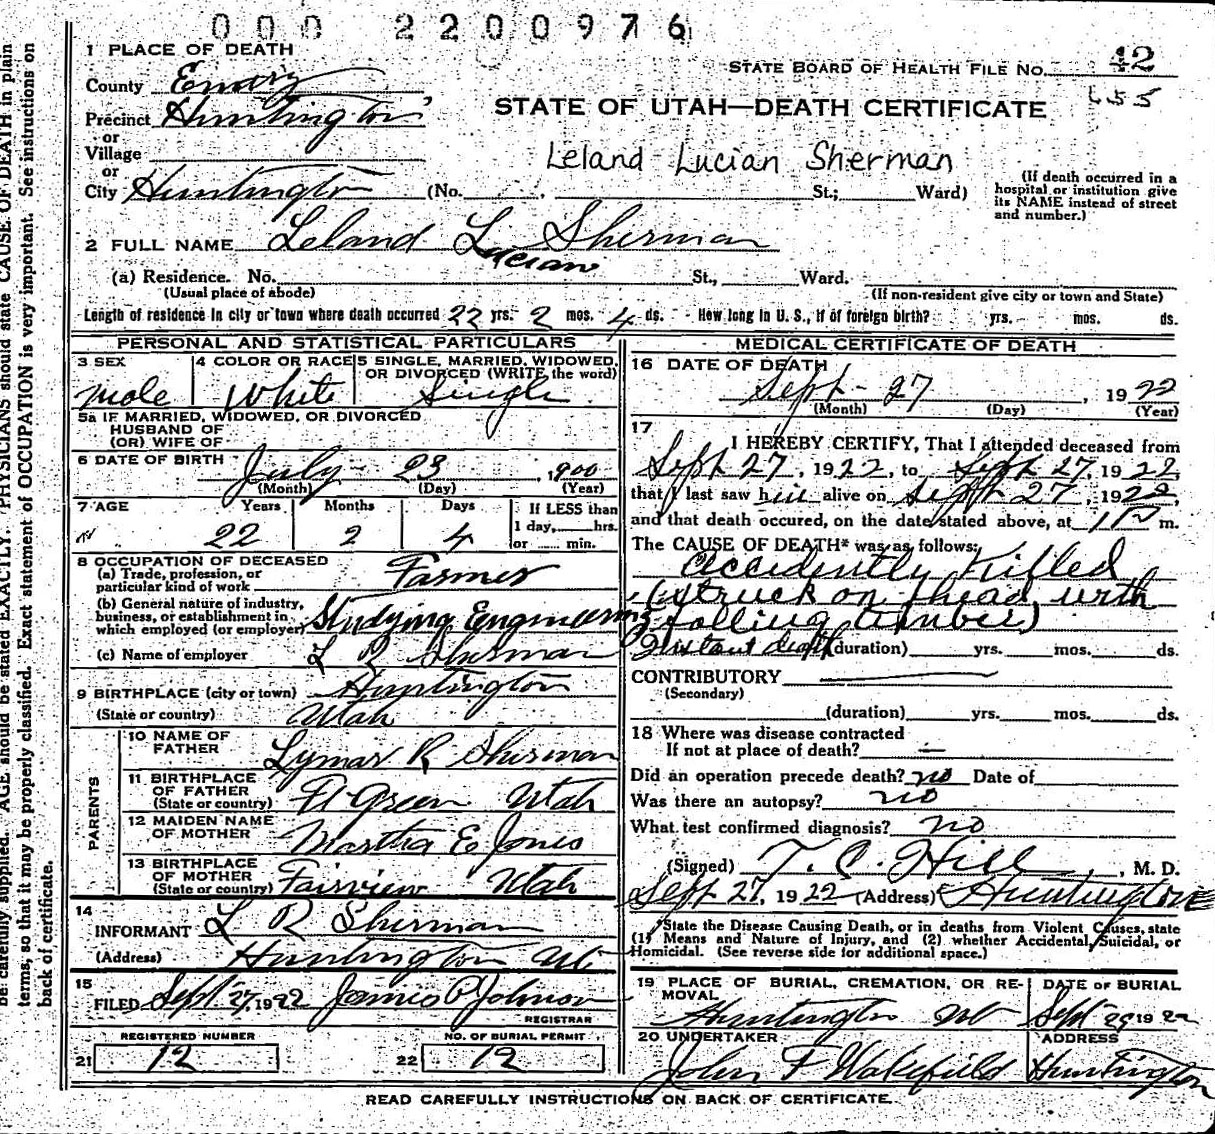 000 2200976
1 PLACE OF DEATH
County Emery
STATE BOARD OF HEALTH FILE NO. 42
655
Precinct Huntington
STATE OF UTAH—DEATH CERTIFICATE
or
Village
Leland Lucian Sherman
or
City Huntington (No. , St.; Ward)
(If death occurred in a hospital or institution give its NAME instead of street and number.)
2 FULL NAME Leland L. Sherman
Lucian
(a) Residence. No. St., Ward.
(Usual place of abode) (If non-resident give city or town and State)
Length of residence in city or town where death occurred 22 yrs. 2 mos. 4 ds. How long in U. S., if of foreign birth? yrs. mos. ds.
PERSONAL AND STATISTICAL PARTICULARS
3 SEX
4 COLOR OR RACE
5 SINGLE, MARRIED, WIDOWED, OR DIVORCED (WRITE the word)
Male White Single
5a IF MARRIED, WIDOWED, OR DIVORCED
HUSBAND OF
(OR) WIFE OF
6 DATE OF BIRTH
July 23, 1900
(Month) (Day) (Year)
7 AGE Years Months Days If LESS than
1 day, hrs.
22 2 4 or min.
8 OCCUPATION OF DECEASED
(a) Trade, profession, or particular kind of work Farmer
(b) General nature of industry, business, or establishment in which employed (or employer) Studying Engineering
(c) Name of employer L R Sherman
9 BIRTHPLACE (city or town) Huntington
(State or country) Utah
PARENTS
10 NAME OF FATHER Lyman R Sherman
11 BIRTHPLACE OF FATHER (State or country) Ft Green Utah
12 MAIDEN NAME OF MOTHER Martha E Jones
13 BIRTHPLACE OF MOTHER (State or country) Fairview Utah
14
INFORMANT L R Sherman
(Address) Huntington Ut
15
FILED Sept 27, 1922 James P Johnson
REGISTRAR
REGISTERED NUMBER
21 12
NO. OF BURIAL PERMIT
22 12
MEDICAL CERTIFICATE OF DEATH
16 DATE OF DEATH
Sept 27, 1922
(Month) (Day) (Year)
17
I HEREBY CERTIFY, That I attended deceased from
Sept 27, 1922, to Sept 27, 1922,
that I last saw him alive on Sept 27, 1922,
and that death occured, on the date stated above, at 1 P m.
The CAUSE OF DEATH* was as follows:
accidently Killed
(struck on head with
falling timber)
Instant death (duration) yrs. mos. ds.
CONTRIBUTORY
(Secondary)
(duration) yrs. mos. ds.
18 Where was disease contracted
If not at place of death? —
Did an operation precede death? no Date of
Was there an autopsy? no
What test confirmed diagnosis? no
(Signed) T. C. Hill, M. D.
Sept 27, 1922 (Address) Huntington
*State the Disease Causing Death, or in deaths from Violent Causes, state
(1) Means and Nature of Injury, and (2) whether Accidental, Suicidal, or
Homicidal. (See reverse side for additional space.)
19 PLACE OF BURIAL, CREMATION, OR REMOVAL
DATE OF BURIAL
Huntington Ut Sept 29 1922
20 UNDERTAKER ADDRESS
John F Wakefield Huntington
READ CAREFULLY INSTRUCTIONS ON BACK OF CERTIFICATE.
be carefully supplied. AGE should be stated EXACTLY. PHYSICIANS should state CAUSE OF DEATH in plain
terms, so that it may be properly classified. Exact statement of OCCUPATION is very important. See instructions on
back of certificate.